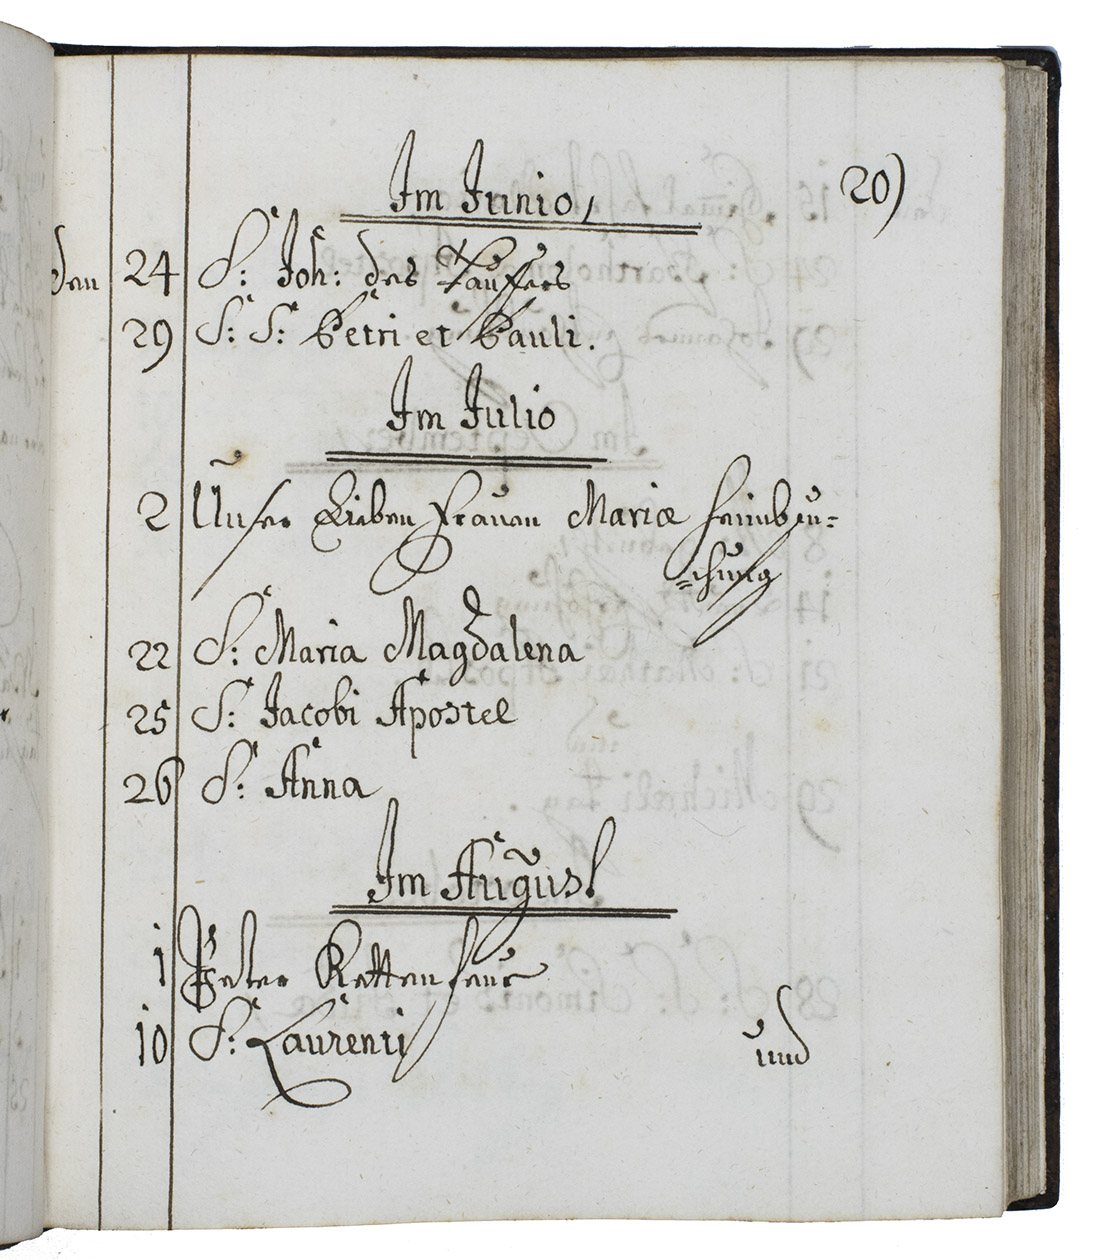 20)
Im Junio,
den 24 S: Joh: des Tauffers
29 S: S: Petri et Pauli.
Im Julio
2 Unser Lieben Frauen Mariæ Heimbsu=
=chung
22 S: Maria Magdalena
25 S: Jacobi Apostel
26 S: Anna
Im August
1 Peter Kettenfeur
10 S: Laurenti
und